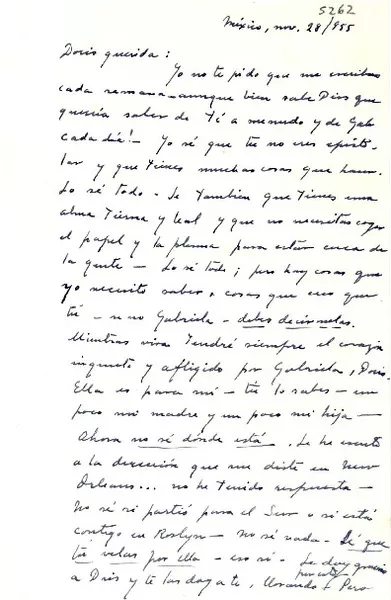 5262
México, nov. 28/955
Doris querida:
Yo no te pido que me escribas
cada semana - aunque bien sabe Dios que
querría saber de tí a menudo y de Gab.
cada día! - Yo sé que tu no eres episto-
lar y que tienes muchas cosas que hacer.
Lo sé todo. Se tambien que tienes una
alma tierna y leal y que no necesitas coger
el papel y la pluma para estar cerca de
la gente - Lo sé todo; pero hay cosas que
yo necesito saber, cosas que creo que
tú - y no Gabriela - debes decírmelas.
Mientras viva tendré siempre el corazón
inquieto y afligido por Gabriela, Doris.
Ella es para mí - tú lo sabes - un
poco mi madre y un poco mi hija -
Ahora no sé dónde está. Le he escrito
a la dirección que me diste en New
Orleans... no he tenido respuesta -
No sé si partió para el Sur o si está
contigo en Roslyn - no sé nada - Sé que
tú velas por ella - eso sí - Le doy gracias
por esto
a Dios y te las doy a ti, llorando - Pero